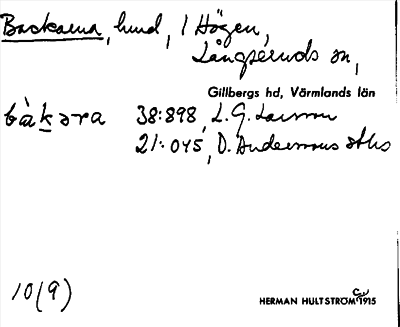 Backarna, hmd, 1 Högen,
Långseruds sn,
Gillbergs hd, Värmlands län
bàkara 38:898, L.G. Larsson
21:045, D. Anderssons
10(9)
HERMAN HULTSTRÖM 1915